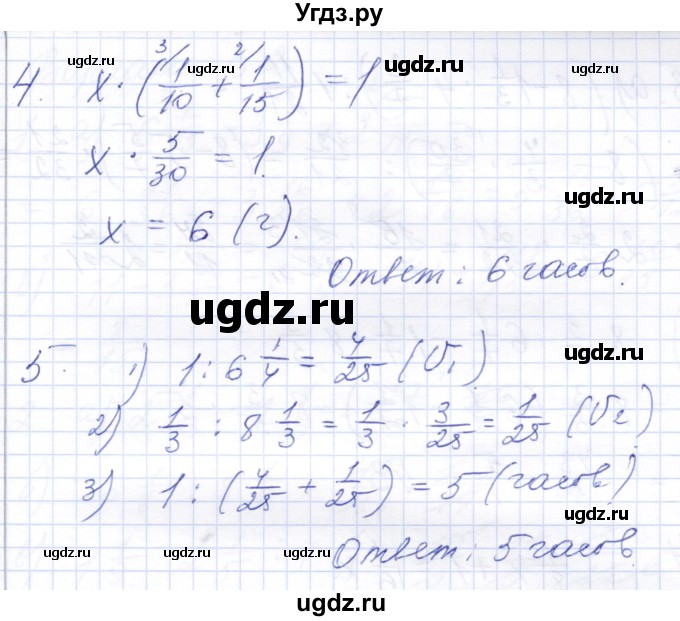 Угдз.ру
ugdz.ru ugdz.ru ugdz.ru
4. x · (³⁄1/10 + ²⁄1/15) = 1
ugdz.ru
x · 5/30 = 1.
ugdz.ru
x = 6 (ч).
Ответ: 6 часов.
ugdz.ru
5. 1) 1 : 6 1/4 = 4/25 (V₁)
ugdz.ru
2) 1/3 : 8 1/3 = 1/3 · 3/25 = 1/25 (V₂)
3) 1 : (4/25 + 1/25) = 5 (часов)
ugdz.ru
ugdz.ru ugdz.ru ugdz.ru
Ответ: 5 часов.
ugdz.ru